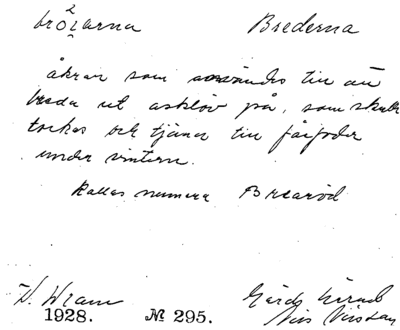 Brederna
åkrar som användes till att
breda ut asklöv på, som skulle
torkas och tjäna till fårfoder
under vintern.
Kallas numera Brearöd
V. Wram
1928. № 295.
Nils